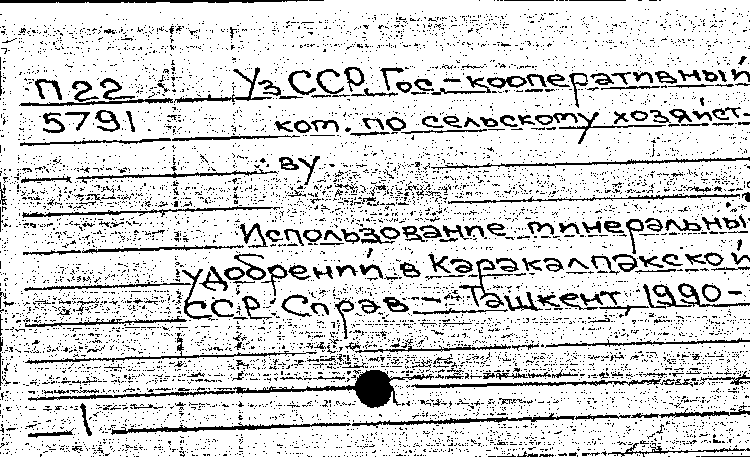 П22 УзССР. Гос.-кооперативный
5791 ком. по сельскому хозяйст-
ву.
Использование минеральны
удобрений в Каракалпакской
ССР: Справ.— Ташкент, 1990-